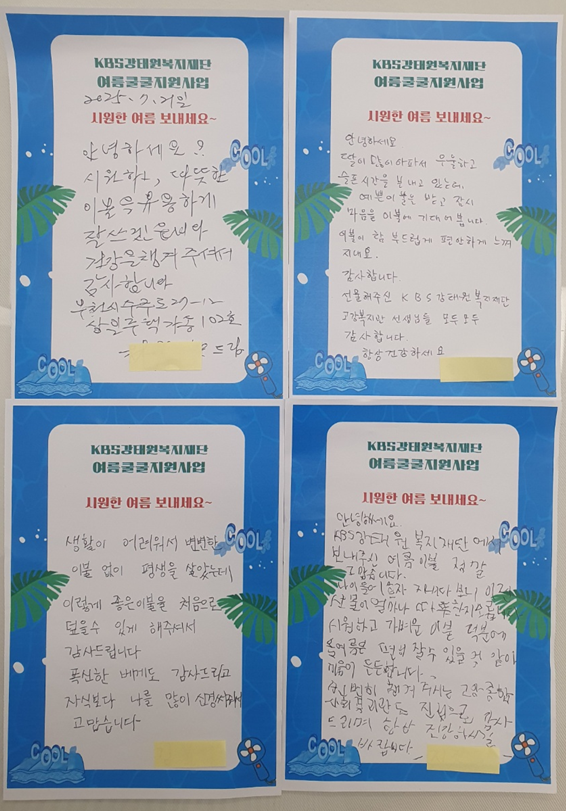 KBS강태원복지재단
여름쿨쿨지원사업
2025. 7. 21일
시원한 여름 보내세요~
안녕하세요?
시원하고, 따뜻한
이불 유용하게
잘쓰겠읍니다
건강을 챙겨 주셔서
감사합니다
부천시 수주로
삼일주택 가동 102호
드림
COOL
COOL
KBS강태원복지재단
여름쿨쿨지원사업
시원한 여름 보내세요~
안녕하세요
딸이 많이 아파서 우울하고
슬픈시간을 보내고 있는데
예쁜이불을 받고 잠시
마음을 이불에 기대어봅니다
이불이 참 부드럽게 편안하게 느껴
지네요.
감사합니다
선물해주신 KBS강태원복지재단
고강복지관 선생님들 모두모두
감사합니다
항상건강하세요
COOL
COOL
KBS강태원복지재단
여름쿨쿨지원사업
시원한 여름 보내세요~
생활이 어려워서 변변한
이불 없이 평생을 살았는데
이렇게 좋은이불을 처음으로
덮을수 있게 해주셔서
감사드립니다
폭신한 베게도 감사드리고
자식보다 나를 많이 신경써줘서
고맙습니다
COOL
COOL
KBS강태원복지재단
여름쿨쿨지원사업
시원한 여름 보내세요~
안녕하세요
KBS강태원 복지재단에서
보내주신 여름이불 정말
고맙습니다.
나이들어 혼자 지내다 보니 이런
선물이 얼마나 따뜻한지 모릅니다
시원하고 가벼운 이불 덕분에
올여름은 편히 잘수 있을 것 같아
마음이 든든합니다.
챙겨 주시는 고강종합
사회복지관도 진심으로 감사
드리며 항상 건강하시길
바랍니다
COOL
COOL